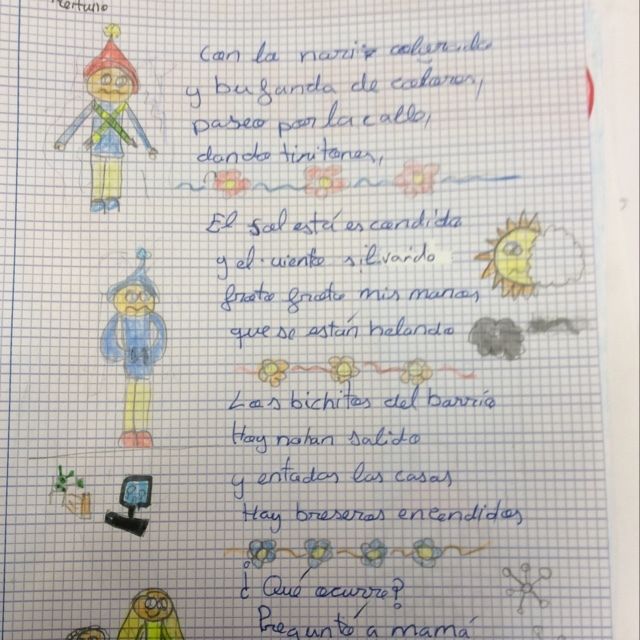 Con la nariz colorada
y bufanda de colores,
paseo por la calle,
dando tiritones,
El sol está escondido
y el viento silvando
froto froto mis manos,
que se están helando
Los bichitos del barrio
Hoy no han salido
y entodas las casas
Hay braseros encendidos
¿Qué ocurre?
Pregunté a mamá